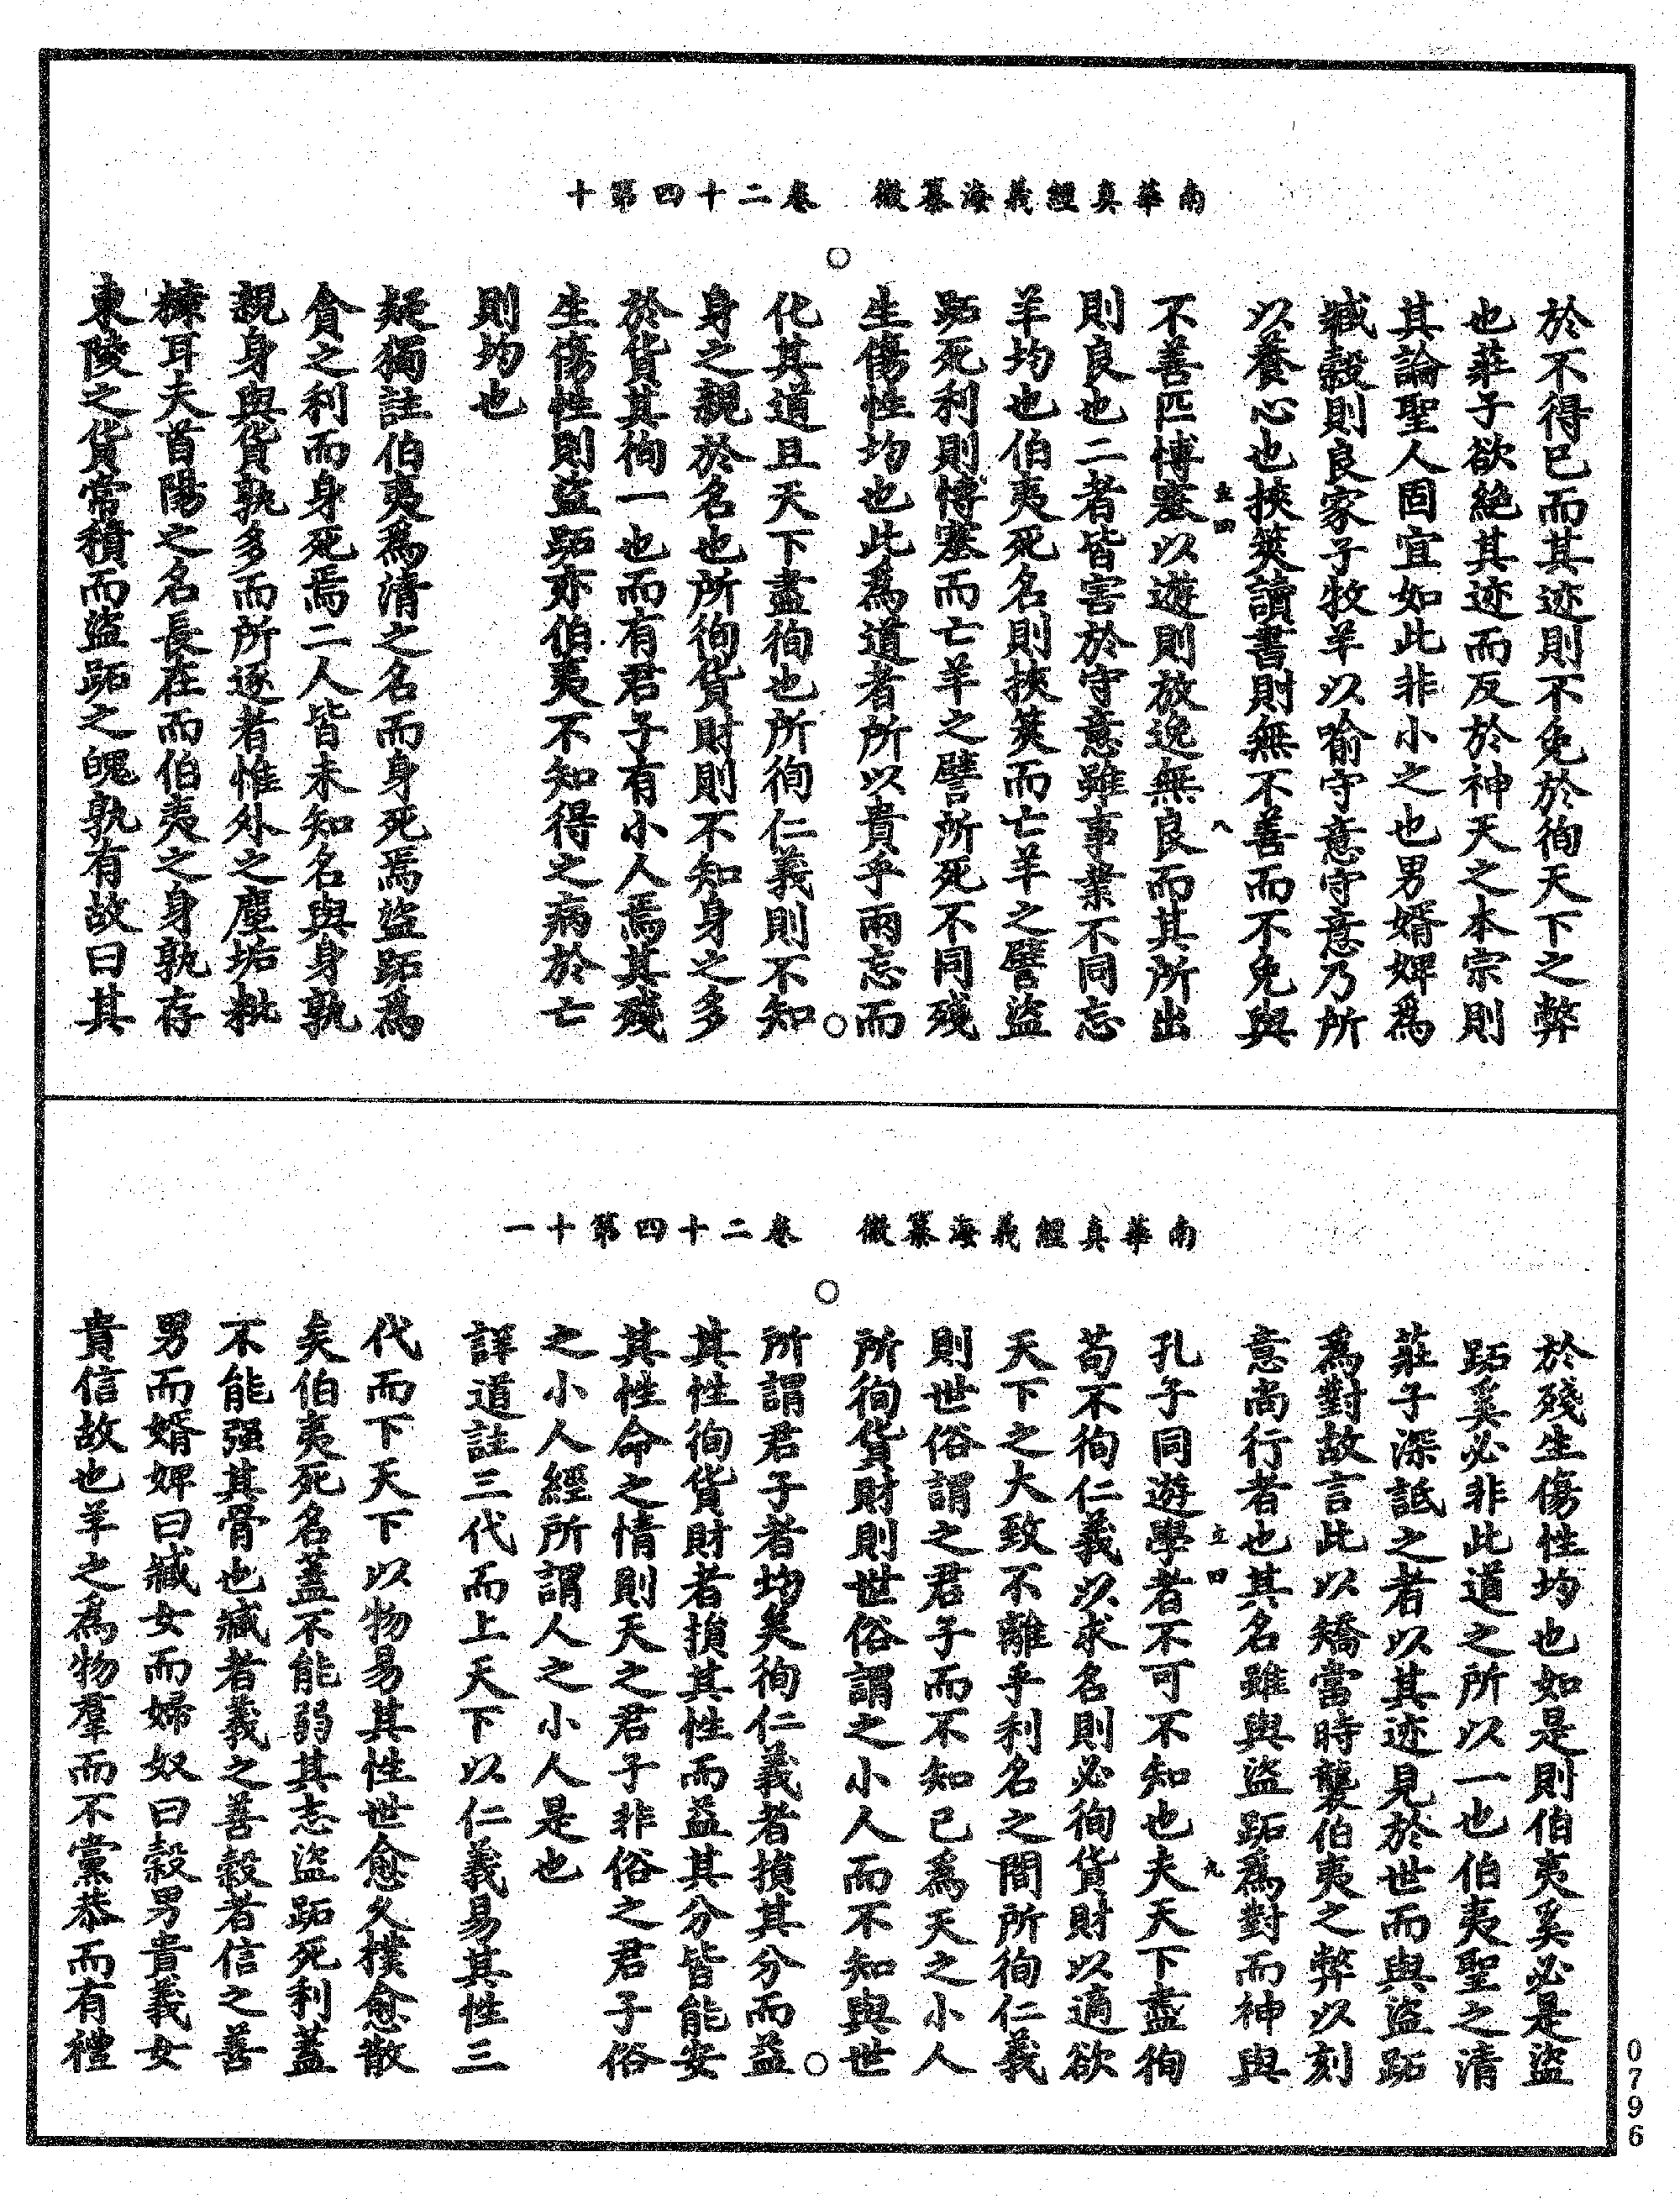 南華真經義海纂微　卷二十四第十
於不得已而其迹則不免於徇天下之弊
也莊子欲絕其迹而反於神天之本宗則
其論聖人固宜如此非小之也男婿婢爲
臧穀則良家子牧羊以喻守意守意乃所
以養心也挾筴讀書則無不善而不免與
立四　八
不善匹博塞以遊則放逸無良而其所出
則良也二者皆害於守意雖事業不同忘
羊均也伯夷死名則挾筴而亡羊之譬盜
跖死利則博塞而亡羊之譬所死不同殘
生傷性均也此爲道者所以貴乎兩忘而
化其道且天下盡徇也所徇仁義則不知
身之親於名也所徇貨財則不知身之多
於貨其徇一也而有君子有小人焉其殘
生傷性則盜跖亦伯夷不知得之病於亡
則均也
疑獨註伯夷爲清之名而身死焉盜跖爲
貪之利而身死焉二人皆未知名與身孰
親身與貨孰多而所逐者惟外之塵垢粃
糠耳夫首陽之名長在而伯夷之身孰存
東陵之貨常積而盜跖之魄孰有故曰其
南華真經義海纂微　卷二十四第十一
於殘生傷性均也如是則伯夷奚必是盜
跖奚必非此道之所以一也伯夷聖之清
莊子深詆之者以其迹見於世而與盜跖
爲對故言此以矯當時襲伯夷之弊以刻
意尚行者也其名雖與盜跖爲對而神與
立四　九
孔子同遊學者不可不知也夫天下盡徇
苟不徇仁義以求名則必徇貨財以適欲
天下之大致不離乎利名之間所徇仁義
則世俗謂之君子而不知已爲天之小人
所徇貨財則世俗謂之小人而不知與世
所謂君子者均矣徇仁義者損其分而益
其性徇貨財者損其性而益其分皆能安
其性命之情則天之君子非俗之君子俗
之小人經所謂人之小人是也
詳道註三代而上天下以仁義易其性三
代而下天下以物易其性世愈久樸愈散
矣伯夷死名蓋不能弱其志盜跖死利蓋
不能强其骨也臧者義之善穀者信之善
男而婿婢曰臧女而婦奴曰穀男貴義女
貴信故也羊之爲物羣而不黨恭而有禮
0796